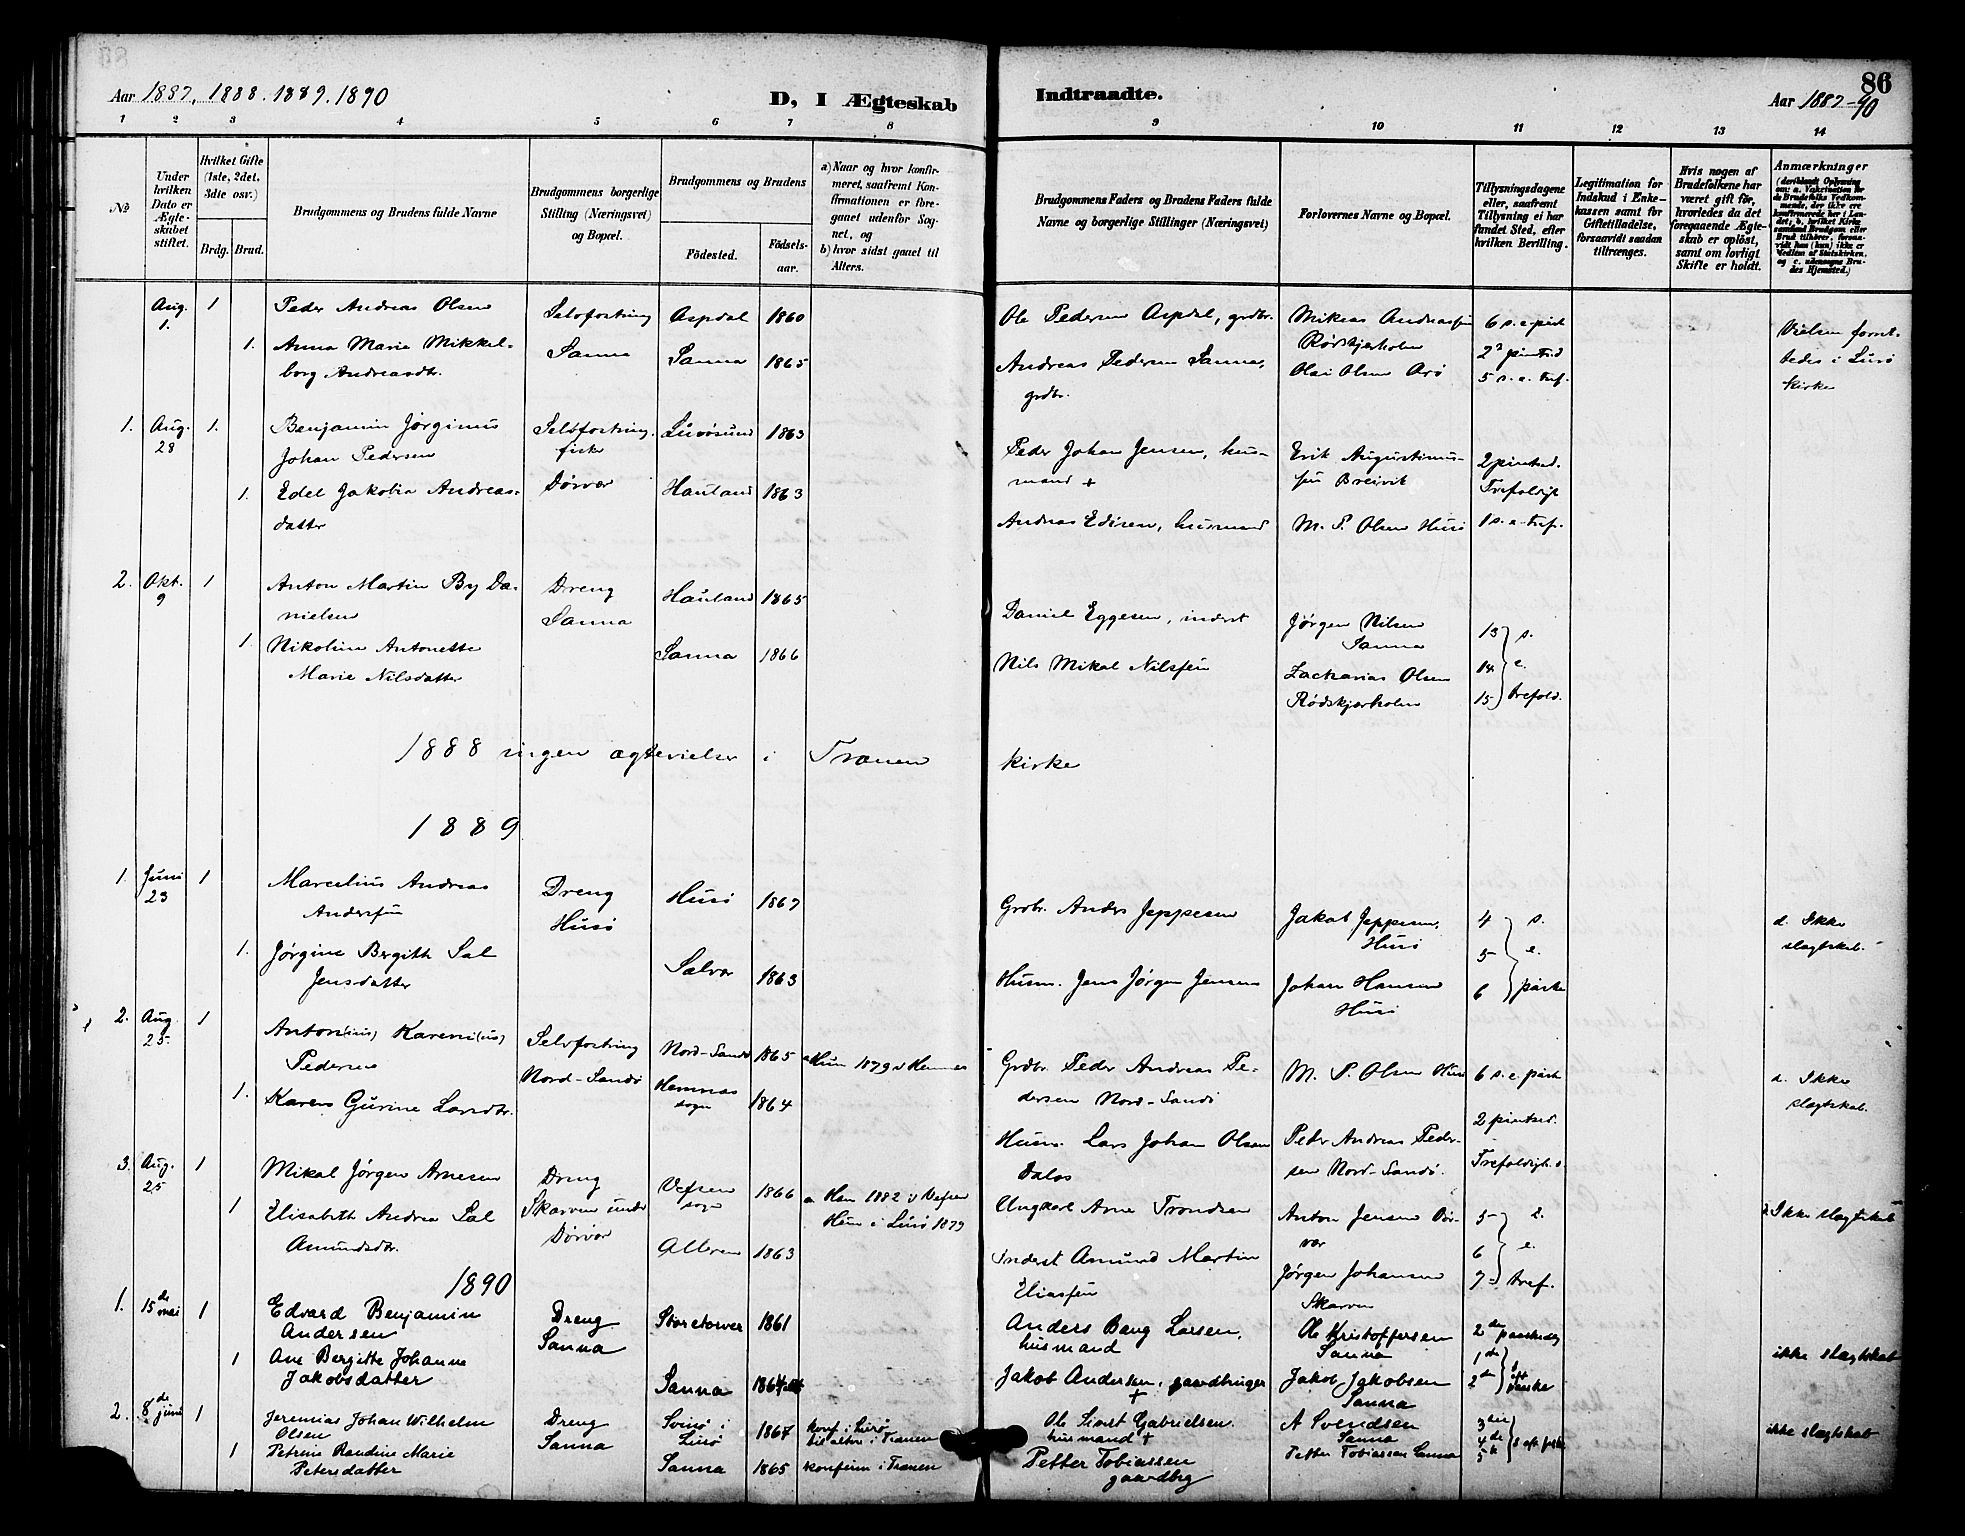 Aar 1887, 1888. 1889. 1890
D, I Ægteskab
Indtraadte.
86
Aar 1887-90
1 2 3 4 5 6 7 8 9 10 11 12 13 14
№
Under hvilken Dato er Ægteskabet stiftet.
Hvilket Gifte (1ste, 2det, 3die osv.)
Brdg. Brud.
Brudgommens og Brudens fulde Navne
Brudgommens borgerlige Stilling (Næringsvei) og Bopæl.
Brudgommens og Brudens
Födested.
Födselsaar.
a) Naar og hvor konfirmeret, saafremt Konfirmationen er foregaaet udenfor Sognet, og
b) hvor sidst gaaet til Alters.
Brudgommens Faders og Brudens Faders fulde Navne og borgerlige Stillinger (Næringsvei)
Forlovernes Navne og Bopæl.
Tillysningsdagene eller, saafremt Tillysning ei har fundet Sted, efter hvilken Bevilling.
Legitimation for Indskud i Enkekassen samt for Giftetilladelse, forsaavidt saadan tiltrænges.
Hvis nogen af Brudefolkene har været gift för, hvorledes da det foregaaende Ægteskab er oplöst, samt om lovligt Skifte er holdt.
Anmærkninger
Aug. 1. 1 Peder Andreas Olsen Selvfostring Aspdal 1860 Ole Pedersen Aspdal, grdbr. Mikras Andreassen 6 s. e. pask
Rødskjærholm
1. Anna Marie Mikkelborg Andreasdtr. Sanna Sanna 1865 Andreas Pedersen Sanna, grdbr. Olai Olsen Arö 5 s. e. tref.
Vielsen forrettedes i Lurö kirke
1. Aug. 28 1. Benjamin Jørginus Johan Pedersen Selvfostring. fisker Lurösund 1863 Peder Johan Jensen, husmand + Erik Augustinussen Breivik 2 pintsed. Trefoldigh
1. Edel Jakobia Andreasdatter Dörvær Hauland 1863 Andreas Edisen, husmand M. P. Olsen Husö 1 s. e. tref.
2. Okt. 9 1 Anton Martin By Danielsen Dreng Sanna Hauland 1865 Daniel Eggesen, inderst Jørgen Nilsen Sanna 13 s.
1. Nikoline Antonette Marie Nilsdatter Sanna 1866 Nils Mikal Nilssen Zacharias Olsen Rødskjærholm 14 e. 15 trefold.
1888 ingen ægtevielser i Trænen kirke
1889
1. Juni 23 1 Marcelius Andreas Anderssen Dreng Husö Husö 1867 Grdbr. Anders Jeppesen Jakob Jeppesen, Husö 4 s.
d. Ikke slagtskab.
1. Jørgine Bergitte Sal Jensdatter Selvær 1863 Husm. Jens Jørgen Jensen Johan Hansen Husö 5 e. 6 påske
2. Aug. 25. 1 Anton(ius) Kareni(us) Pedersen Selvfostring Nord-Sandö Nord-Sandö 1865 a Hun 1879 i Hemnes Grdbr. Peder Andreas Pedersen Nord-Sandö M. P. Olsen Husö 6 s. e. påsk
d. Ikke slagtskab.
1. Karen Gurine Larsdtr. Hemnæs sogn 1864 Husm. Lars Johan Olsen Dalos Peder Andreas Pedersen Nord-Sandö. 2 pintsed. Trefoldigh.
3. Aug. 25 1 Mikal Jørgen Arnesen Dreng Skarven under Dörvær Vefsen sogn 1866 a Han 1882 i Vefsen Hun i Lurö 1879 Ungkarl Arne Trondsen Anton Jensen Dörvær 5 s.
Ikke slagtskab
1 Elisabeth Andrea Sal Amundsdtr. 1863 Inderst Amund Martin Eliassen Jørgen Johansen Skarven 6 e. 7 tref.
1890
1. 15de mai 1 Edvard Benjamin Andersen Dreng Sanna Storetorver 1861 Anders Bang Larsen, husmand Ole Kristoffersen Sanna 2den paaskedag
1 Ane Bergitte Johanna Jakobsdatter Sanna 1864 Jakob Andersen, gaardbruger + Jakob Jakobsen Sanna 1de 2de s. eft. paaske
ikke slagtskab
2. 8de juni 1 Jeremias Johan Wilhelm Olsen Dreng Sanna Svinö i Lurö 1867 konf. i Lurö til alters i Trænen Ole Simt Gabrielsen. husmand + A Svendsen Sanna 3die
ikke slagtskab
1 Petrine Randine Marie Petersdatter Sanna 1865 konfirm i Trænen Petter Tobiassen gaardbrg Petter Tobiassen Sanna 4de 5te s. eft. påske